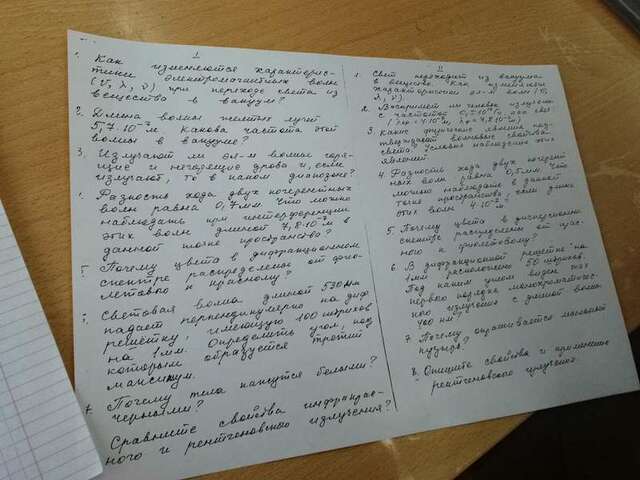 I
1. Как изменяются характерис-
тики электромагнитных волн
(υ, λ, ν) при переходе света из
вещества в вакуум?
2. Длина волны желтых лучей
5,7·10⁻⁷м. Какова частота этой
волны в вакууме?
3. Излучают ли эл-м волны горя-
щие и негорящие дрова и, если
излучают, то в каком диапазоне?
Разность хода двух когерентных
волн равна 0,7мкм. Что можно
наблюдать при интерференции
этих волн длиной 7,8·10⁻⁷м в
данной точке пространства?
5. Почему цвета в дифракционном
спектре распределены от фио-
летового к красному?
Световая волна длиной 530 нм
падает перпендикулярно на диф
решётку, имеющую 100 штрихов
на 1мм. Определите угол, под
которым образуется третий
максимум.
Почему тела кажутся белыми?
черными?
Сравните свойства инфракрас-
ного и рентгеновского излучения?
II
1. Свет переходит из вакуума
в вещество. Как изменяются
характеристики эл-м волн (υ,
λ, ν)
2. Воспримет ли человек излучение
с частотой
3. Какие физические явления под-
тверждают волновые свойства
света. Условия наблюдения этих
явлений.
4. Разность хода двух когерент
ных волн равна
можно наблюдать в данной
точке пространства, если длина
этих волн 4·10⁻⁷м
5. Почему цвета в дисперсионном
спектре распределены от крас-
ного к фиолетовому?
6. В дифракционной решетке на
1мм расположены 50 штрихов.
Под каким углом виден мак
первого порядка монохроматичес-
кого излучения с длиной волны
400 нм?
7. Почему окрашивается мыльный
пузырь?
8. Опишите свойства и применение
рентгеновского излучения.